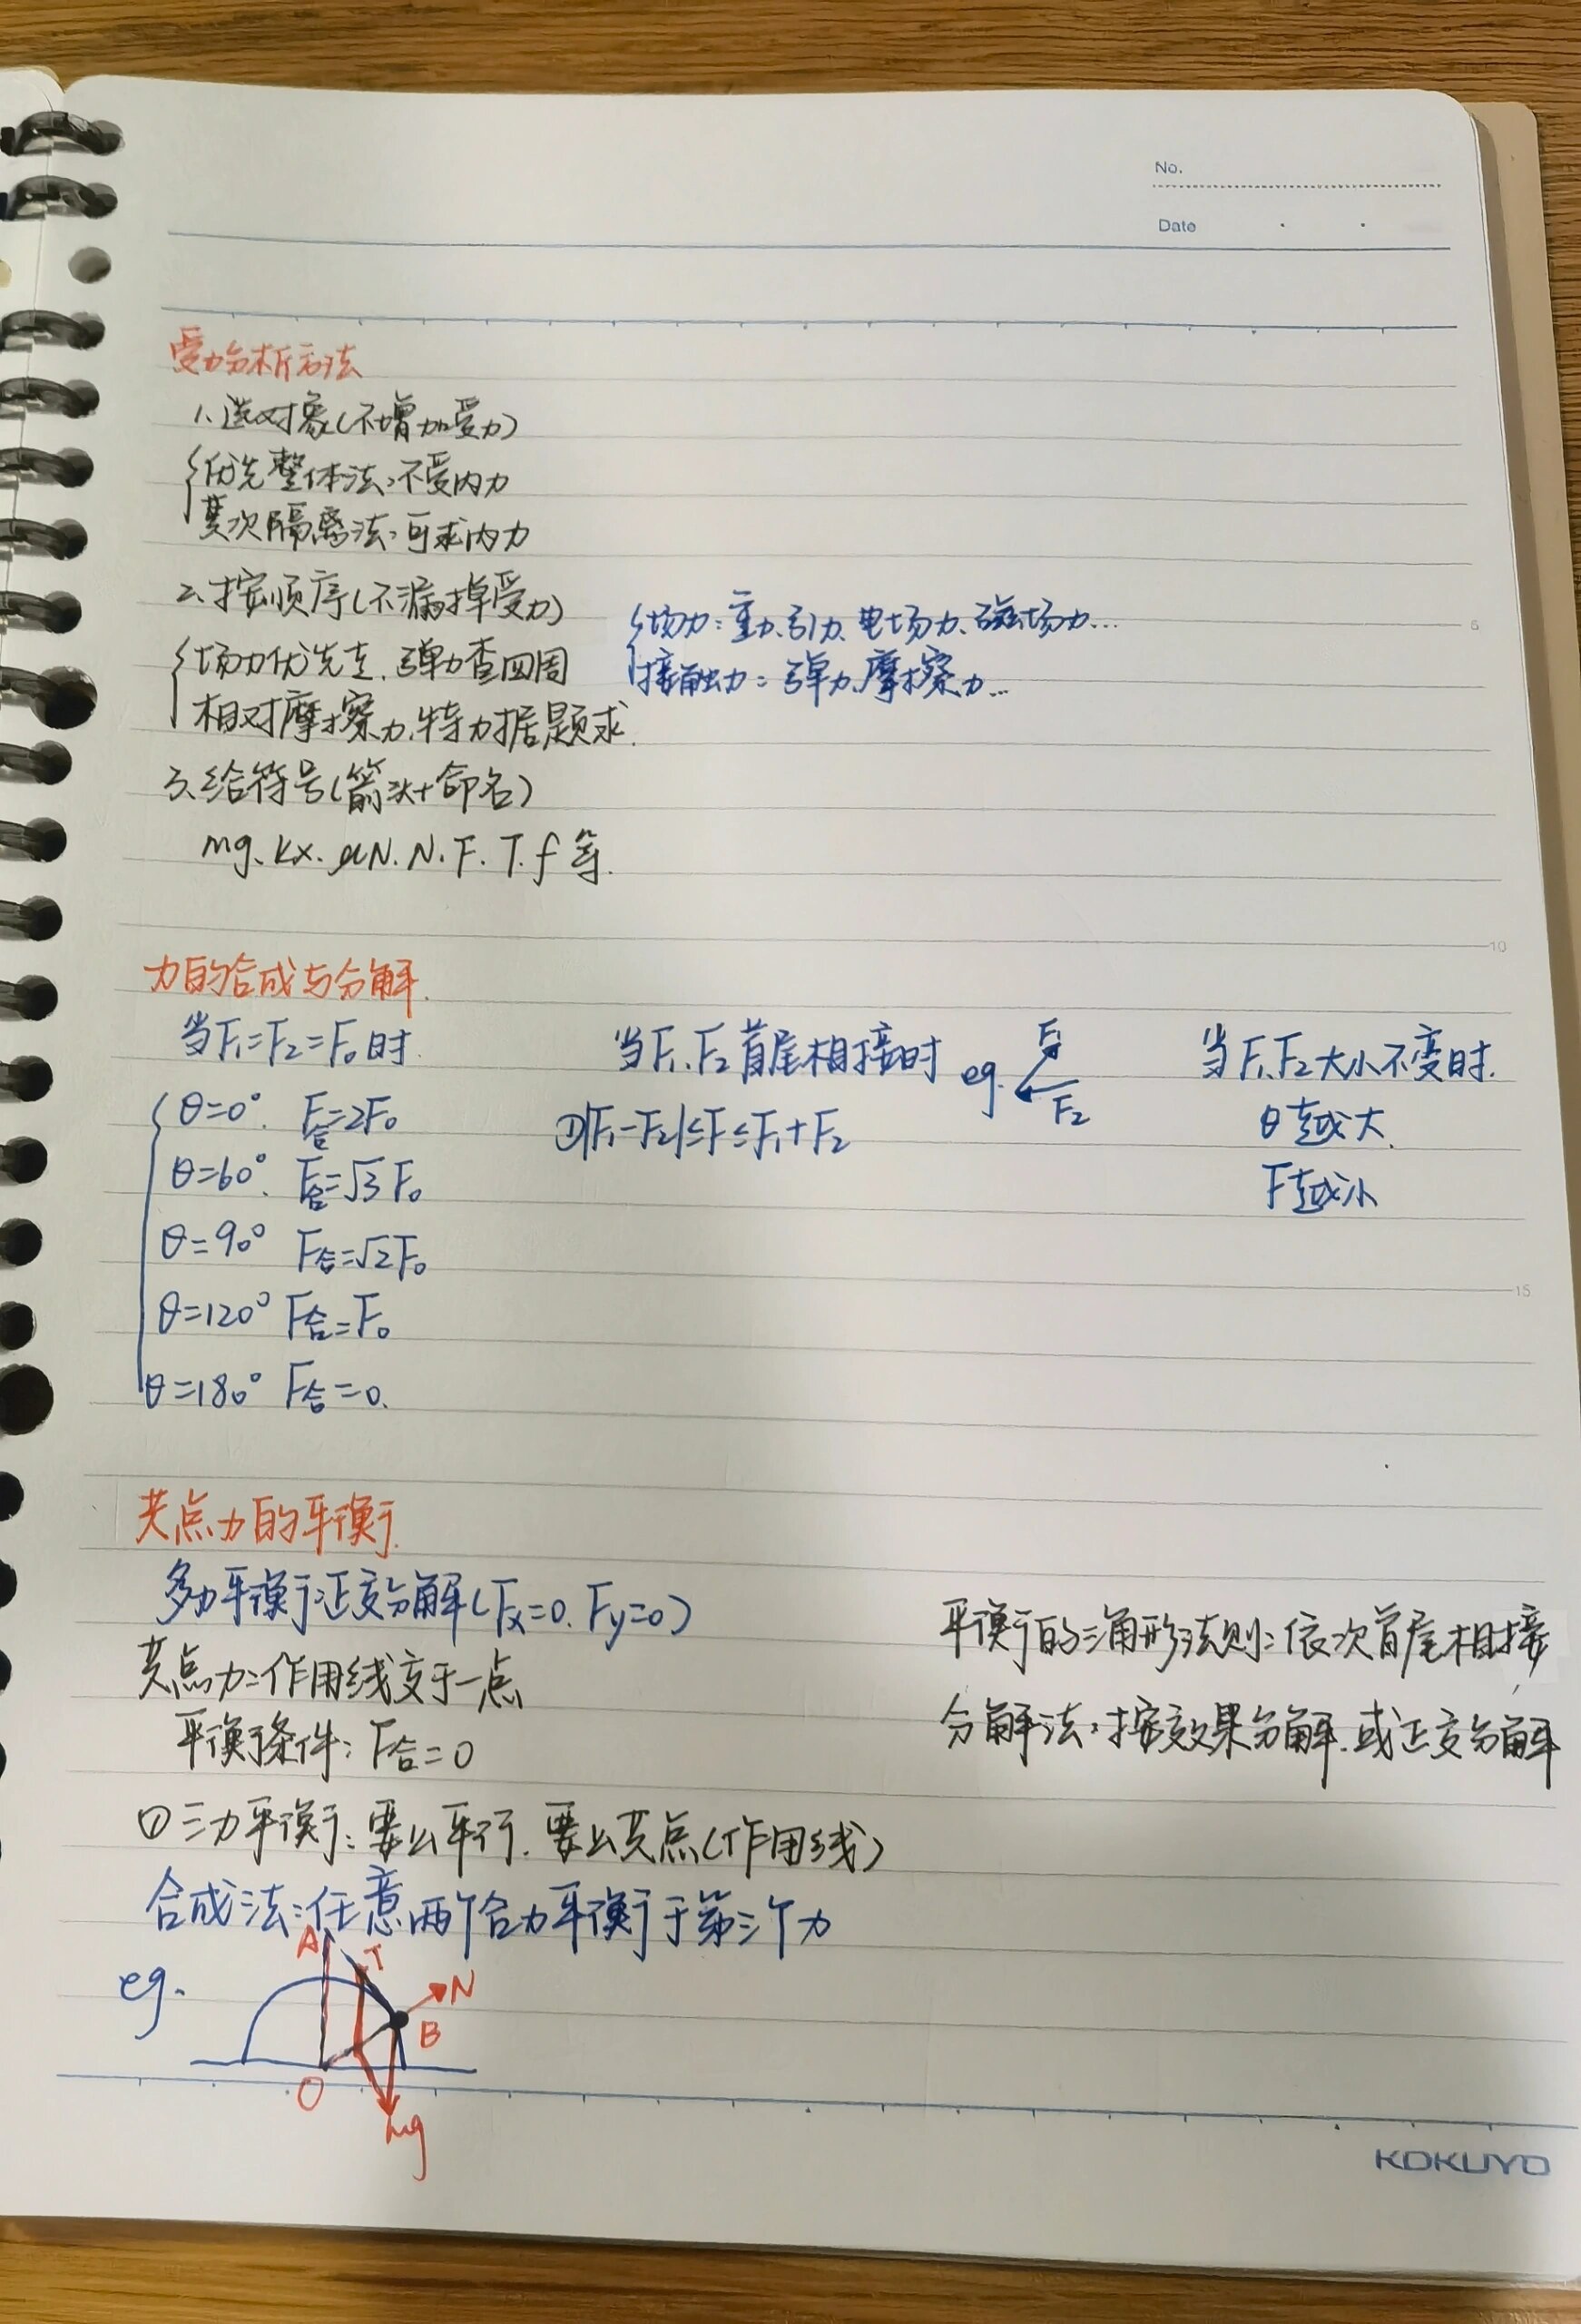 No.
Date
受力分析方法
1.选对象(不增加受力)
优先整体法:不受内力
其次隔离法:可求内力
2.按顺序(不漏掉受力)
场力优先走.弹力查四周
相对摩擦力.特力据题求.
场力:重力、引力、电场力、磁场力...
接触力:弹力、摩擦力...
3.给符号(箭头+命名)
mg、kx、μN、N、F、T、f等.
5
10
力的合成与分解.
当F₁=F₂=F₀时.
θ=0°. F合=2F₀
θ=60°. F合=√3F₀
θ=90° F合=√2F₀
θ=120° F合=F₀
θ=180° F合=0.
当F₁、F₂首尾相接时 eg.
F₁
F₂
①|F₁-F₂|≤F≤F₁+F₂
当F₁、F₂大小不变时.
θ越大.
F越小
15
共点力的平衡.
多力平衡:正交分解(Fx=0. Fy=0)
共点力:作用线交于一点
平衡条件:F合=0
平衡的三角形法则:依次首尾相接
分解法:按效果分解.或正交分解
①三力平衡:要么平行.要么共点(作用线)
合成法:任意两个合力平衡于第三个力
eg.
A
T
N
B
O
mg
KOKUYO